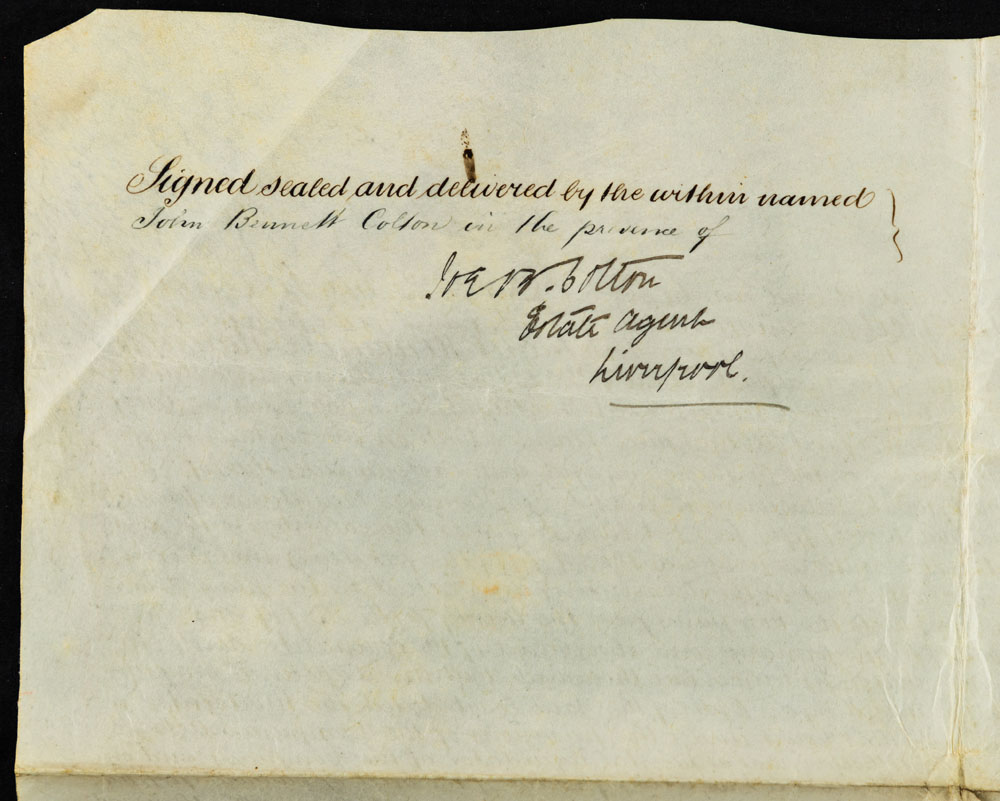 Signed sealed and delivered by the within named
John Bennett Colton in the presence of
Colton
Estate Agent
Liverpool.